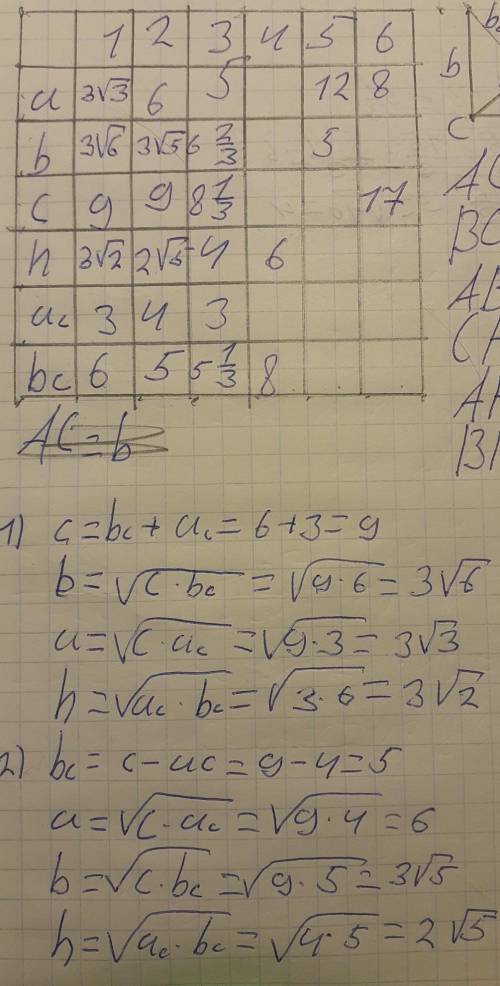 1 2 3 4 5 6
a 3√3 6 5 12 8
b 3√6 3√5 6 2/3 5
c 9 9 8 1/3 17
h 3√2 2√5 4 6
ac 3 4 3
bc 6 5 5 1/3 8
b
C
AC=b
1) c=bc+ac=6+3=9
b=√c·bc=√9·6=3√6
a=√c·ac=√9·3=3√3
h=√ac·bc=√3·6=3√2
2) bc=c-ac=9-4=5
a=√c-ac=√9·4=6
b=√c·bc=√9·5=3√5
h=√ac·bc=√4·5=2√5